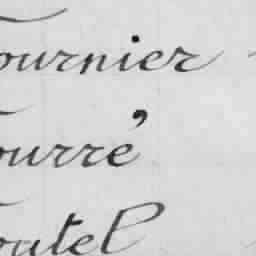 Fournier
Fourré
Foutel